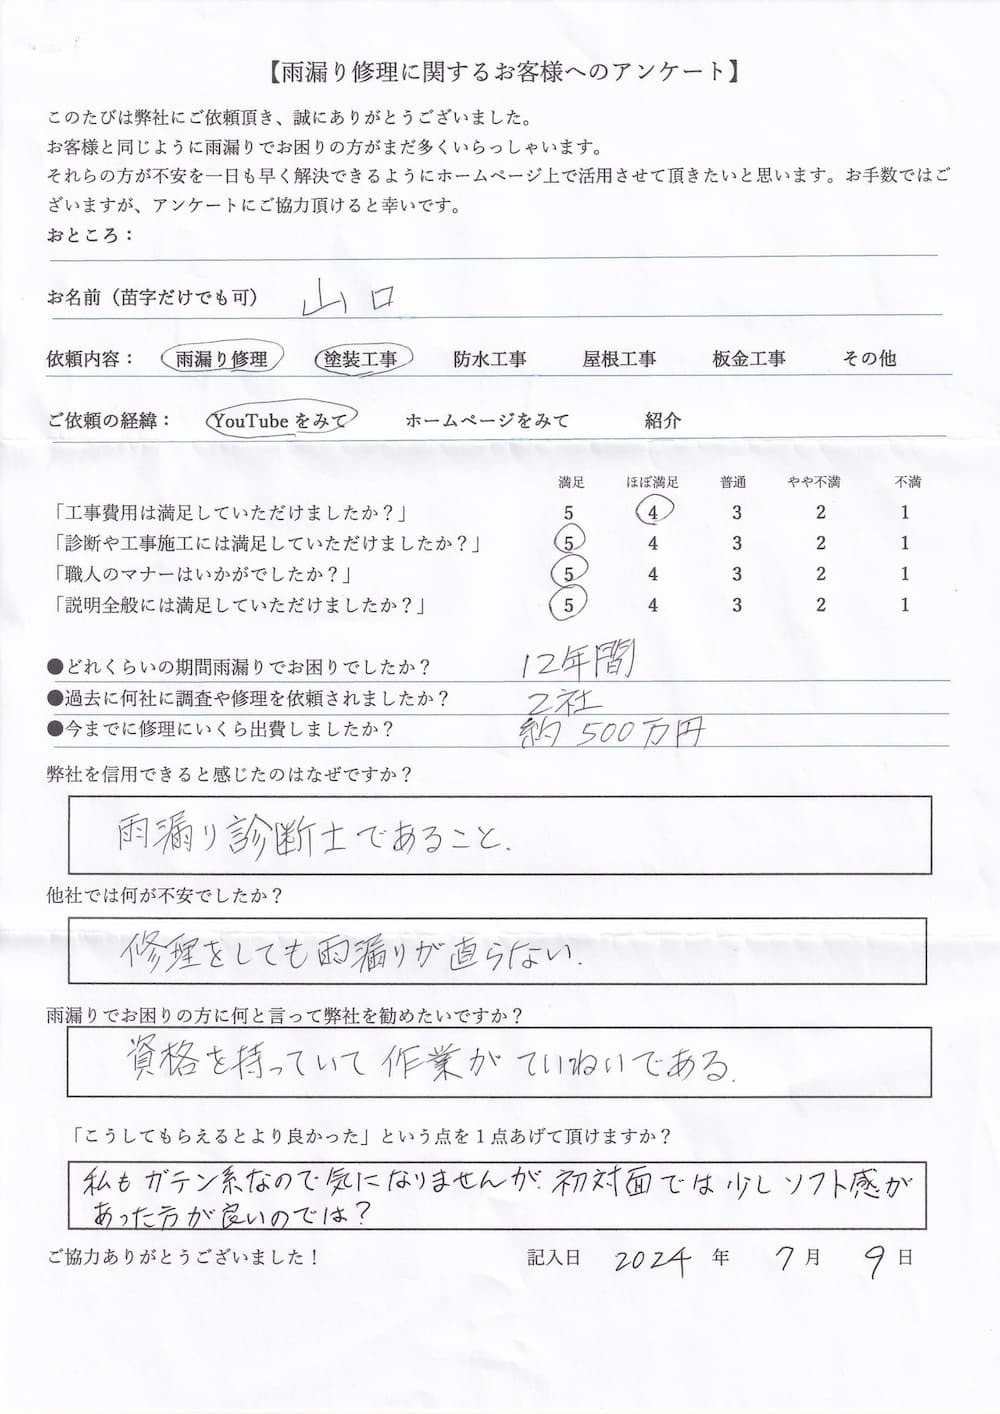 【雨漏り修理に関するお客様へのアンケート】
このたびは弊社にご依頼頂き、誠にありがとうございました。
お客様と同じように雨漏りでお困りの方がまだ多くいらっしゃいます。
それらの方が不安を一日も早く解決できるようにホームページ上で活用させて頂きたいと思います。お手数ではご
ざいますが、アンケートにご協力頂けると幸いです。
おところ：
お名前（苗字だけでも可） 山口
依頼内容： 雨漏り修理 塗装工事 防水工事 屋根工事 板金工事 その他
ご依頼の経緯： YouTubeをみて ホームページをみて 紹介
満足 ほぼ満足 普通 やや不満 不満
「工事費用は満足していただけましたか？」 5 4 3 2 1
「診断や工事施工には満足していただけましたか？」 5 4 3 2 1
「職人のマナーはいかがでしたか？」 5 4 3 2 1
「説明全般には満足していただけましたか？」 5 4 3 2 1
●どれくらいの期間雨漏りでお困りでしたか？ 12年間
●過去に何社に調査や修理を依頼されましたか？ 2社
●今までに修理にいくら出費しましたか？ 約500万円
弊社を信用できると感じたのはなぜですか？
雨漏り診断士であること.
他社では何が不安でしたか？
修理をしても雨漏りが直らない.
雨漏りでお困りの方に何と言って弊社を勧めたいですか？
資格を持っていて作業がていねいである.
「こうしてもらえるとより良かった」という点を１点あげて頂けますか？
私もガテン系なので気になりませんが.初対面では少しソフト感が
あった方が良いのでは？
ご協力ありがとうございました！ 記入日 2024年 7月 9日